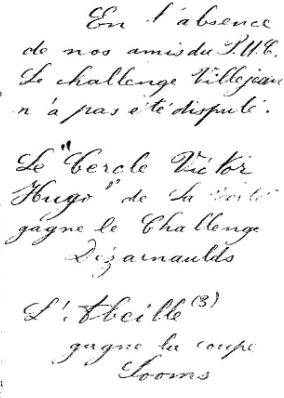 En l'absence
de nos amis du P.U.C.
Le challenge Villejean
n'a pas été disputé.
Le "Cercle Victor
Hugo" de La
gagne le Challenge
Dézarnaulds
L'Abeille (3)
gagne la coupe
Looms